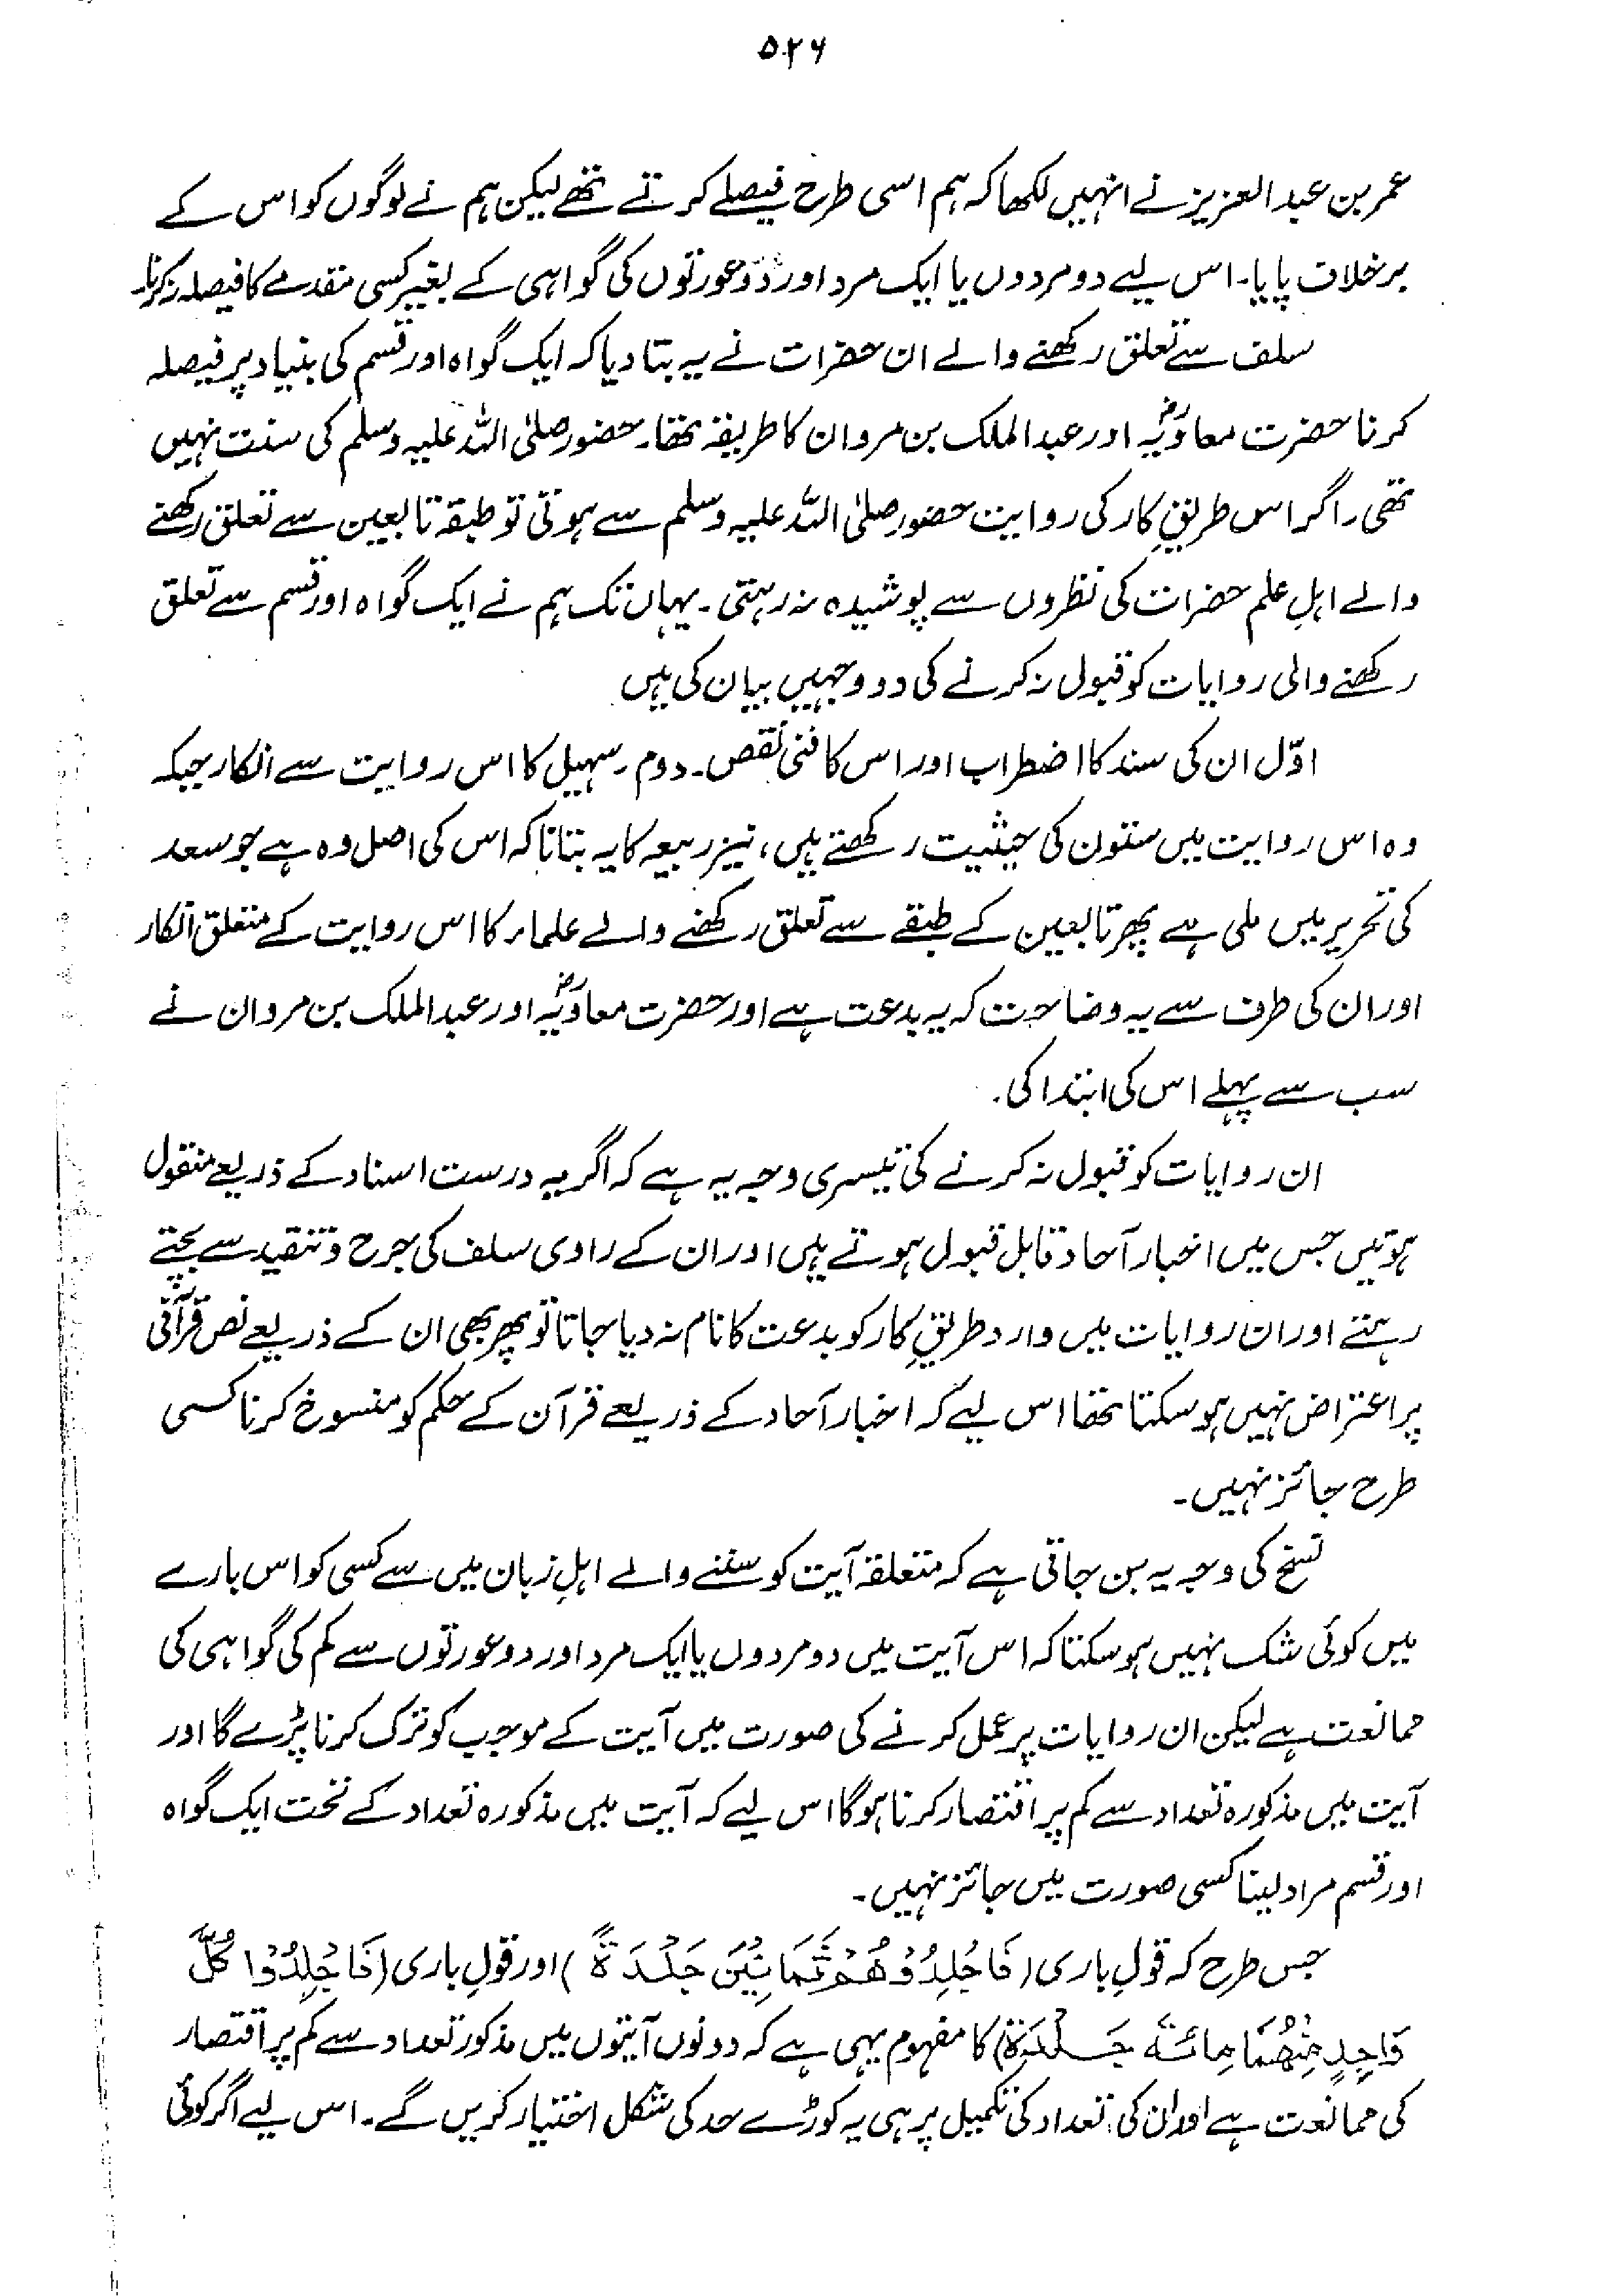 ۵۲۶
عمر بن عبدالعزیز نے انہیں لکھا کہ ہم اسی طرح فیصلے کرتے تھے لیکن ہم نے لوگوں کو اس کے
برخلاف پایا۔ اس لیے دو مردوں یا ایک مرد اور دو عورتوں کی گواہی کے بغیر کسی مقدمے کا فیصلہ نہ کرنا۔
سلف سے تعلق رکھنے والے ان حضرات نے یہ بتا دیا کہ ایک گواہ اور قسم کی بنیاد پر فیصلہ
کرنا حضرت معاویہؓ اور عبدالملک بن مروان کا طریقہ تھا۔ حضور صلی اللہ علیہ وسلم کی سنت نہیں
تھی۔ اگر اس طریقِ کار کی روایت حضور صلی اللہ علیہ وسلم سے ہوتی تو طبقہ تابعین سے تعلق رکھنے
والے اہلِ علم حضرات کی نظروں سے پوشیدہ نہ رہتی۔ یہاں تک ہم نے ایک گواہ اور قسم سے تعلق
رکھنے والی روایات کو قبول نہ کرنے کی دو وجہیں بیان کی ہیں
اوّل ان کی سند کا اضطراب اور اس کا فنی نقص۔ دوم۔ سہیل کا اس روایت سے انکار جبکہ
وہ اس روایت میں ستون کی حیثیت رکھتے ہیں، نیز ربیعہ کا یہ بتانا کہ اس کی اصل وہ ہے جو سعد
کی تحریر میں ملی ہے پھر تابعین کے طبقے سے تعلق رکھنے والے علماء کا اس روایت کے متعلق انکار
اور ان کی طرف سے یہ وضاحت کہ یہ بدعت ہے اور حضرت معاویہؓ اور عبدالملک بن مروان نے
سب سے پہلے اس کی ابتدا کی۔
ان روایات کو قبول نہ کرنے کی تیسری وجہ یہ ہے کہ اگر یہ درست اسناد کے ذریعے منقول
ہوتیں جس میں اخبار آحاد قابل قبول ہوتے ہیں اور ان کے راوی سلف کی جرح و تنقید سے بچتے
رہتے اور ان روایات میں وارد طریقِ کار کو بدعت کا نام نہ دیا جاتا تو پھر بھی ان کے ذریعے نص قرآنی
پر اعتراض نہیں ہو سکتا تھا اس لیے کہ اخبار آحاد کے ذریعے قرآن کے حکم کو منسوخ کرنا کسی
طرح جائز نہیں۔
نسخ کی وجہ یہ بن جاتی ہے کہ متعلقہ آیت کو سننے والے اہلِ زبان میں سے کسی کو اس بارے
میں کوئی شک نہیں ہو سکتا کہ اس آیت میں دو مردوں یا ایک مرد اور دو عورتوں سے کم کی گواہی کی
ممانعت ہے لیکن ان روایات پر عمل کرنے کی صورت میں آیت کے موجب کو ترک کرنا پڑے گا اور
آیت میں مذکورہ تعداد سے کم پر اقتصار کرنا ہوگا اس لیے کہ آیت میں مذکورہ تعداد کے تحت ایک گواہ
اور قسم مراد لینا کسی صورت میں جائز نہیں۔
جس طرح کہ قولِ باری (فَاجْلِدُوْهُمْ ثَمَانِيْنَ جَلْدَةً) اور قولِ باری (فَاجْلِدُوْا كُلَّ
وَاحِدٍ مِّنْهُمَا مِائَةَ جَلْدَةٍ) کا مفہوم یہی ہے کہ دونوں آیتوں میں مذکور تعداد سے کم پر اقتصار
کی ممانعت ہے اور ان کی تعداد کی تکمیل پر ہی یہ کوڑے حد کی شکل اختیار کریں گے۔ اس لیے اگر کوئی